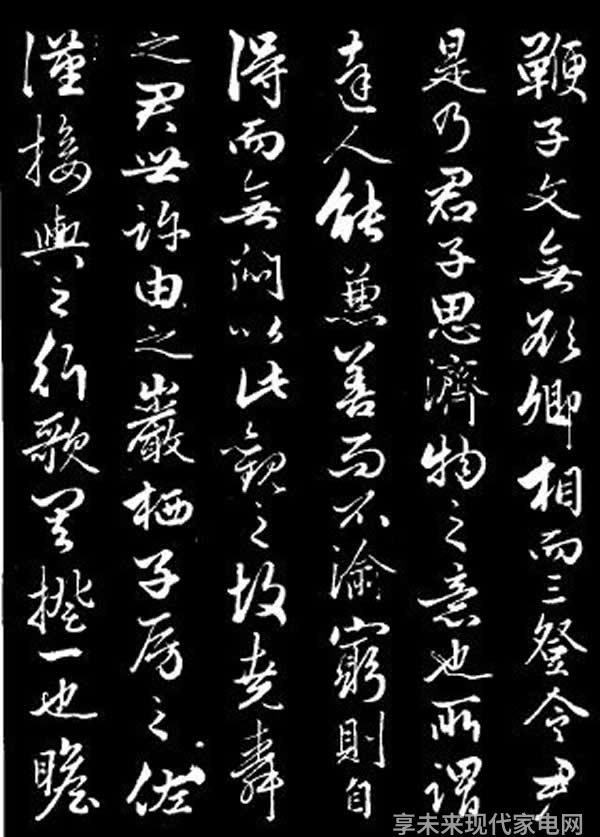 鞭子文無欲卿相而三登令尹
是乃君子思濟物之意也所謂
達人能兼善而不渝窮則自
得而無悶以此觀之故堯舜
之君世許由之巖栖子房之佐
漢接輿之行歌其揆一也瞻
享未来现代家电网